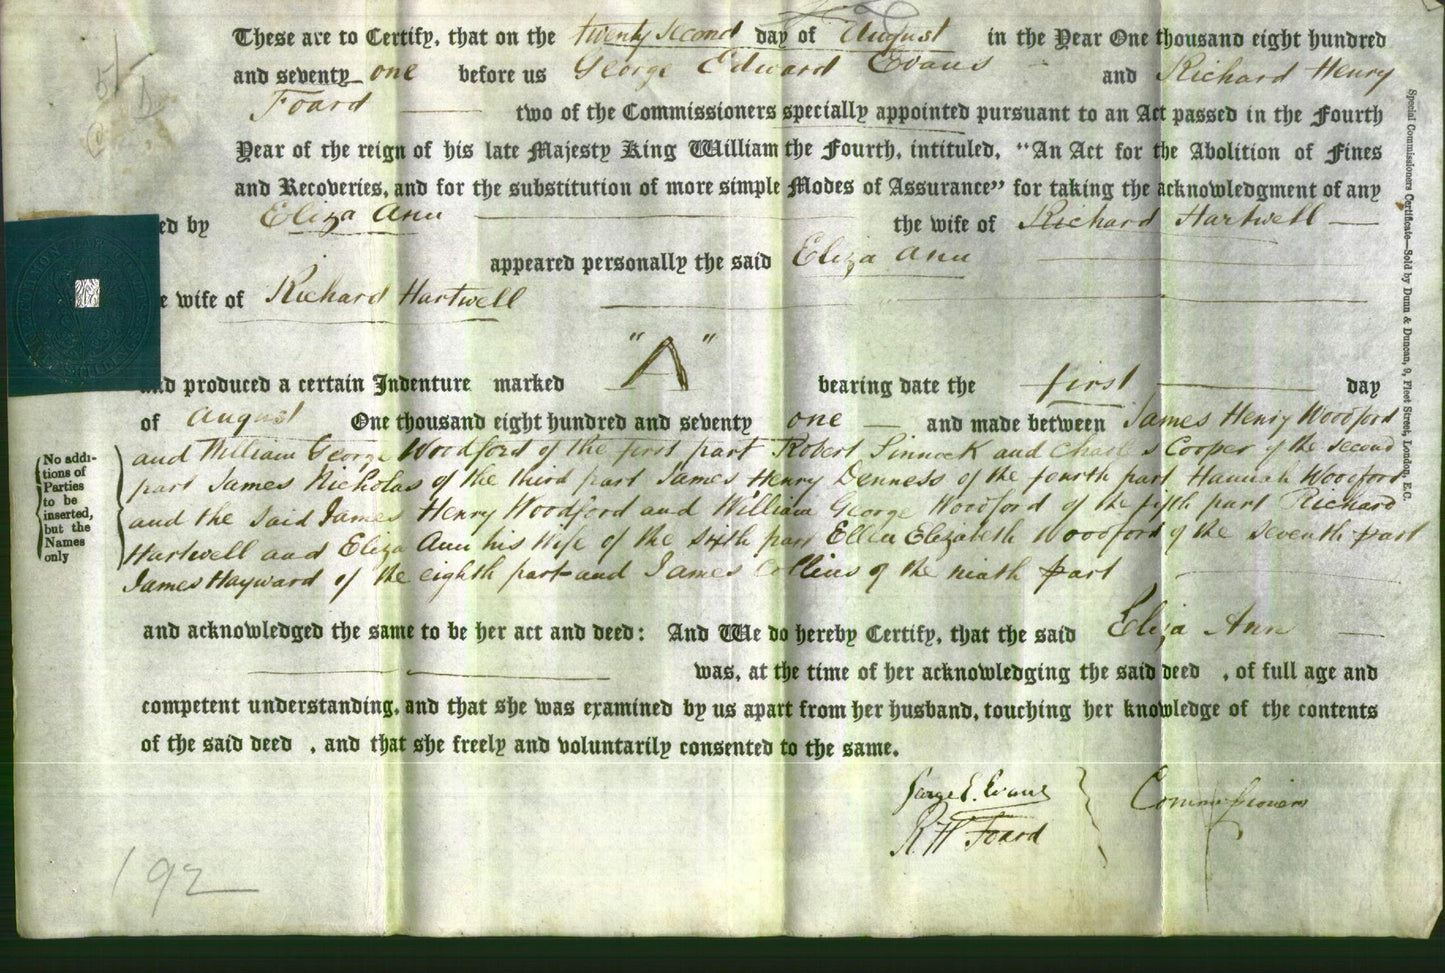 These are to Certify, that on the twenty second day of August in the Year One thousand eight hundred
and seventy one before us George Edward Evans and Richard Henry
Foard two of the Commissioners specially appointed pursuant to an Act passed in the Fourth
Year of the reign of his late Majesty King William the Fourth, intituled, "An Act for the Abolition of Fines
and Recoveries, and for the substitution of more simple Modes of Assurance" for taking the acknowledgment of any
ed by Eliza Ann the wife of Richard Hartwell
appeared personally the said Eliza Ann
e wife of Richard Hartwell
and produced a certain Indenture marked "A" bearing date the first day
of August One thousand eight hundred and seventy one and made between James Henry Woodford
and William George Woodford of the first part Robert Sinnock and Charles Cooper of the second
part James Nicholas of the third part James Henry Denness of the fourth part Hannah Woodford
and the said James Henry Woodford and William George Woodford of the fifth part Richard
Hartwell and Eliza Ann his Wife of the sixth part Ellen Elizabeth Woodford of the seventh part
James Hayward of the eighth part and James Collins of the ninth part
No addi-
tions of
Parties
to be
inserted,
but the
Names
only
and acknowledged the same to be her act and deed: And We do hereby Certify, that the said Eliza Ann
was, at the time of her acknowledging the said deed , of full age and
competent understanding, and that she was examined by us apart from her husband, touching her knowledge of the contents
of the said deed , and that she freely and voluntarily consented to the same.
George E. Evans
R. H. Foard
Commissioners
192
Special Commissioners Certificate—Sold by Dunn & Duncan, 9, Fleet Street, London, E.C.